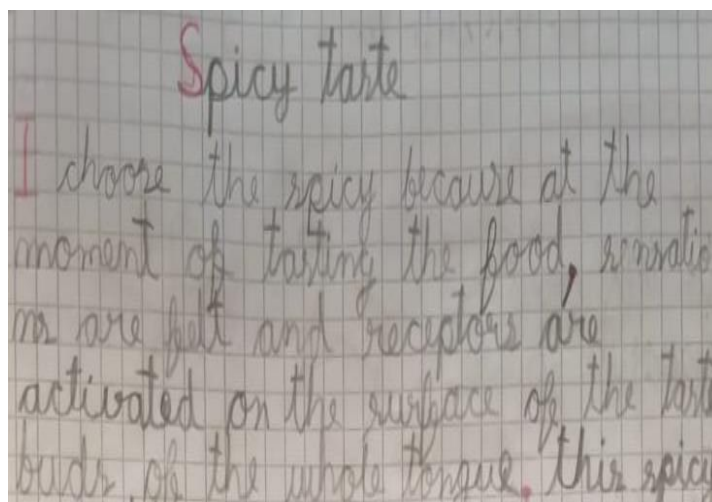 Spicy taste
I choose the spicy because at the
moment of tasting the food, sensatio
ns are felt and receptors are
activated on the surface of the tast
buds of the whole tongue. this spicy